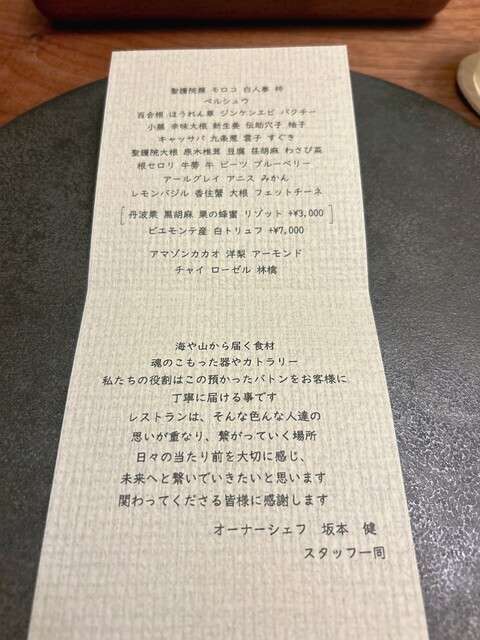 聖護院蕪 モロコ 白人参 柿
ペルシュウ
百合根 ほうれん草 ジンケンエビ パクチー
小蕪 辛味大根 新生姜 伝助穴子 柚子
キャッサバ 九条葱 雲子 すぐき
聖護院大根 原木椎茸 豆腐 荏胡麻 わさび菜
根セロリ 牛蒡 牛 ビーツ ブルーベリー
アールグレイ アニス みかん
レモンバジル 香住蟹 大根 フェットチーネ
丹波栗 黒胡麻 栗の蜂蜜 リゾット +¥3,000
ピエモンテ産 白トリュフ +¥7,000
アマゾンカカオ 洋梨 アーモンド
チャイ ローゼル 林檎
海や山から届く食材
魂のこもった器やカトラリー
私たちの役割はこの預かったバトンをお客様に
丁寧に届ける事です
レストランは、そんな色んな人達の
思いが重なり、繋がっていく場所
日々の当たり前を大切に感じ、
未来へと繋いでいきたいと思います
関わってくださる皆様に感謝します
オーナーシェフ 坂本 健
スタッフ一同